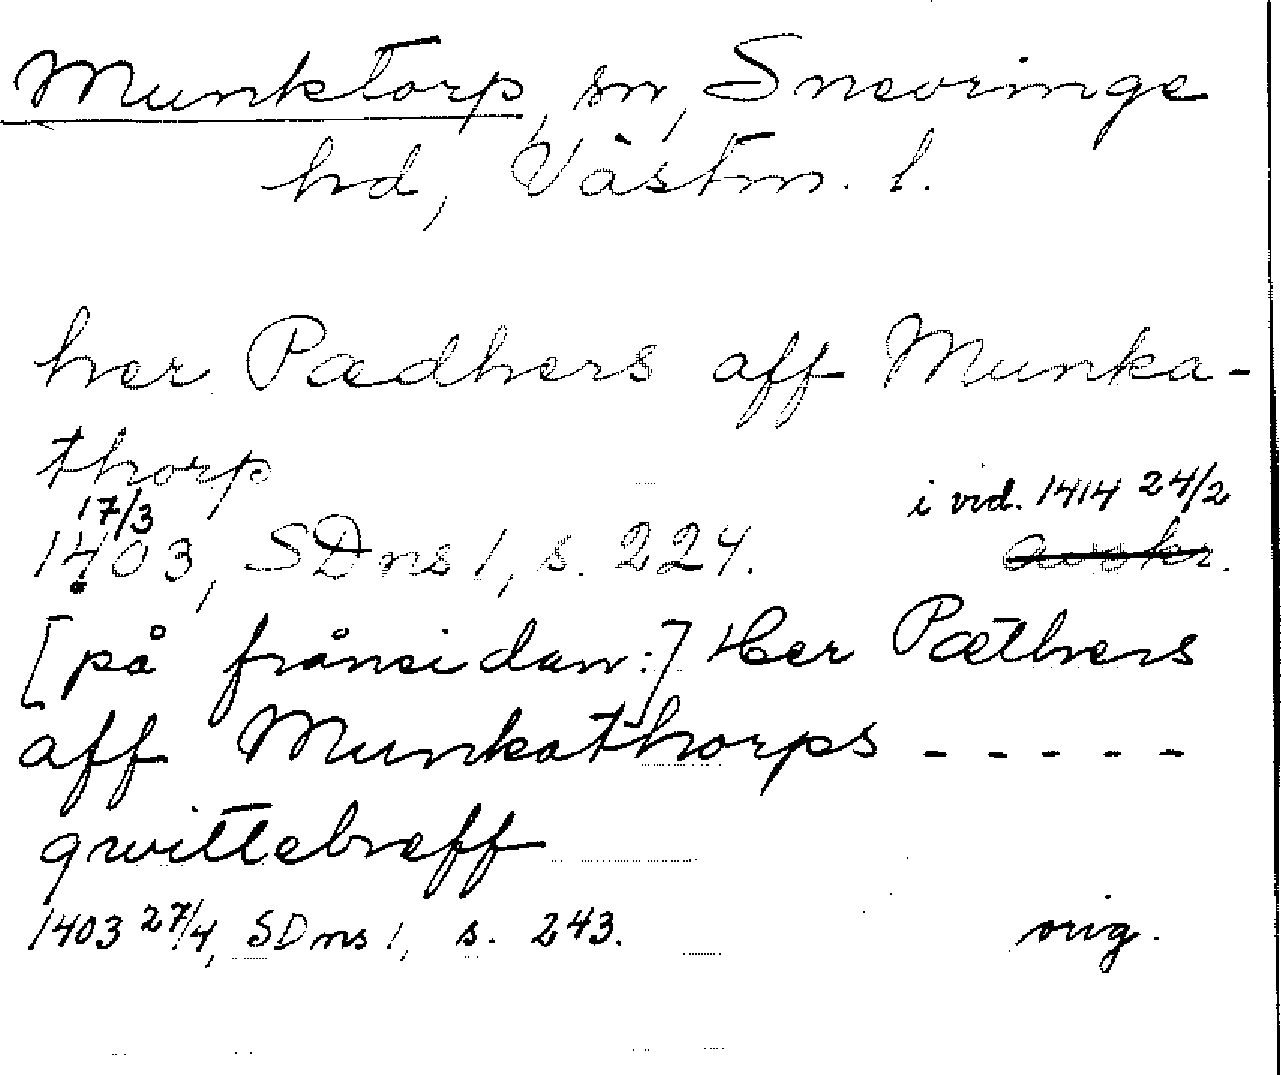 Munktorp, sn, Snevringe
hd, Västm. l.
her Pædhers aff Munka-
thorp
17/3 i vid. 1414 24/2
1403, SDns 1, s. 224. avskr.
[på frånsidan:] Her Pæthers
aff Munkathorps - - - - -
qwittebreff
1403 27/4, SDns 1, s. 243. orig.